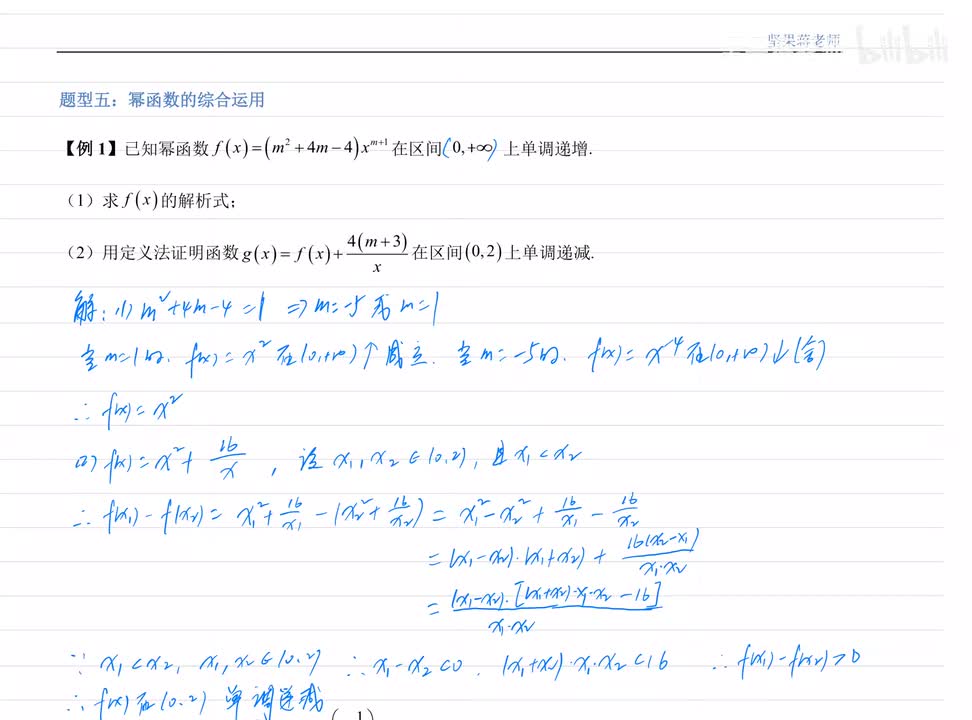 坚果蒋老师 bilibili
题型五：幂函数的综合运用
【例 1】已知幂函数 f(x)=(m²+4m−4)x^{m+1} 在区间(0,+∞) 上单调递增.
（1）求 f(x) 的解析式；
（2）用定义法证明函数 g(x)=f(x)+\frac{4(m+3)}{x} 在区间(0,2)上单调递减.
解: (1) m²+4m-4=1 ⇒ m=-5 或 m=1
当 m=1时. f(x)=x² 在(0,+∞)↑成立. 当 m=-5时. f(x)=x^{-4} 在(0,+∞)↓(舍)
∴ f(x)=x²
(2) f(x)=x²+\frac{16}{x}, 设 x₁, x₂∈(0,2), 且 x₁<x₂
∴ f(x₁)-f(x₂)= x₁²+\frac{16}{x₁}-(x₂²+\frac{16}{x₂}) = x₁²-x₂²+\frac{16}{x₁}-\frac{16}{x₂}
=(x₁-x₂)·(x₁+x₂)+\frac{16(x₂-x₁)}{x₁·x₂}
=\frac{(x₁-x₂)·[(x₁+x₂)·x₁·x₂-16]}{x₁·x₂}
∵ x₁<x₂, x₁,x₂∈(0,2) ∴ x₁-x₂<0. (x₁+x₂)·x₁·x₂<16 ∴ f(x₁)-f(x₂)>0
∴ f(x)在(0,2) 单调递减